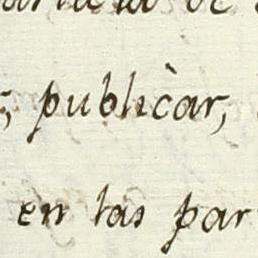 publicàr,
en las par